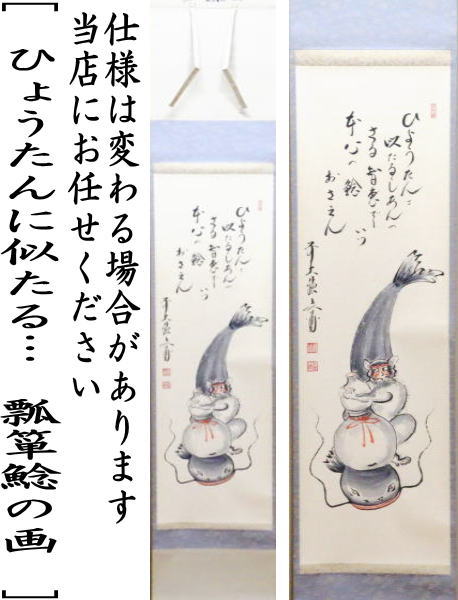 仕様は変わる場合があります
当店にお任せください
[ ひょうたんに似たる… 瓢箪鯰の画 ]
ひょうたんに
似たるしあんの
さる智恵で
本心の鯰
おさえん
ひょうたんに
似たるしあんの
さる智恵で
本心の鯰
おさえん